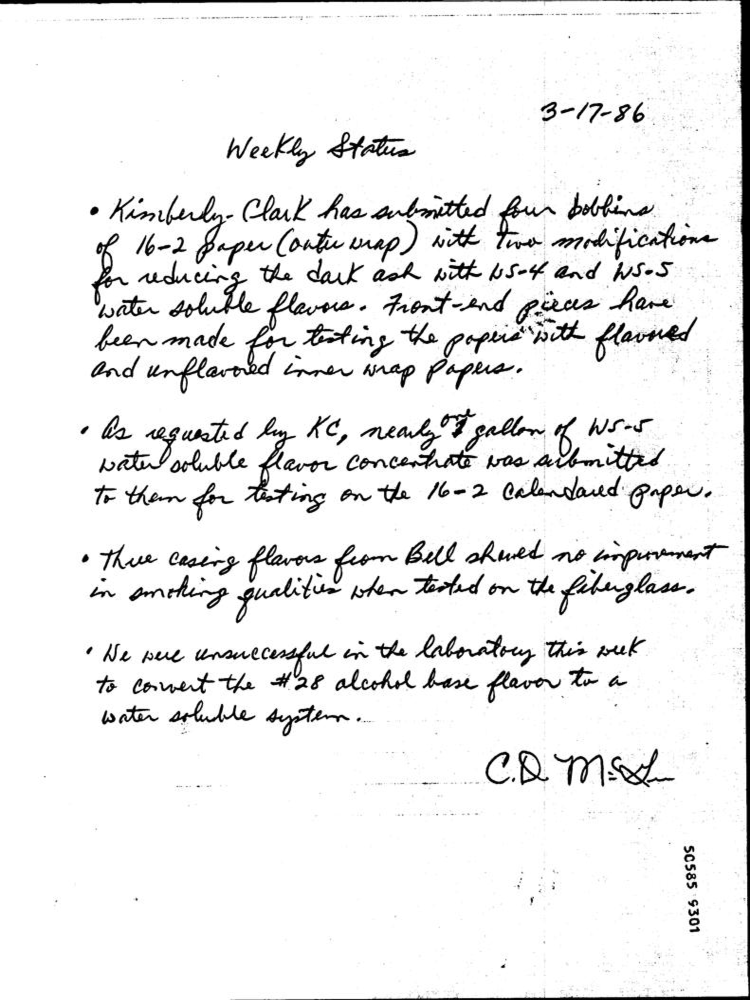 3-17-86
Weekly Status
• Kimberly-Clark has submitted four bobbins
of 16-2 paper (outer wrap) with two modifications
for reducing the dark ash with WS-4 and WS-5
water soluble flavors. Front-end pieces have
been made for testing the papers with flavored
and unflavored inner wrap papers.
• As requested by KC, nearly one gallon of WS-5
water soluble flavor concentrate was submitted
to them for testing on the 16-2 calendared paper.
• Three casing flavors from Bell showed no improvement
in smoking qualities when tested on the fiberglass.
• We were unsuccessful in the laboratory this week
to convert the #28 alcohol base flavor to a
water soluble system.
C.D.
50585 9301